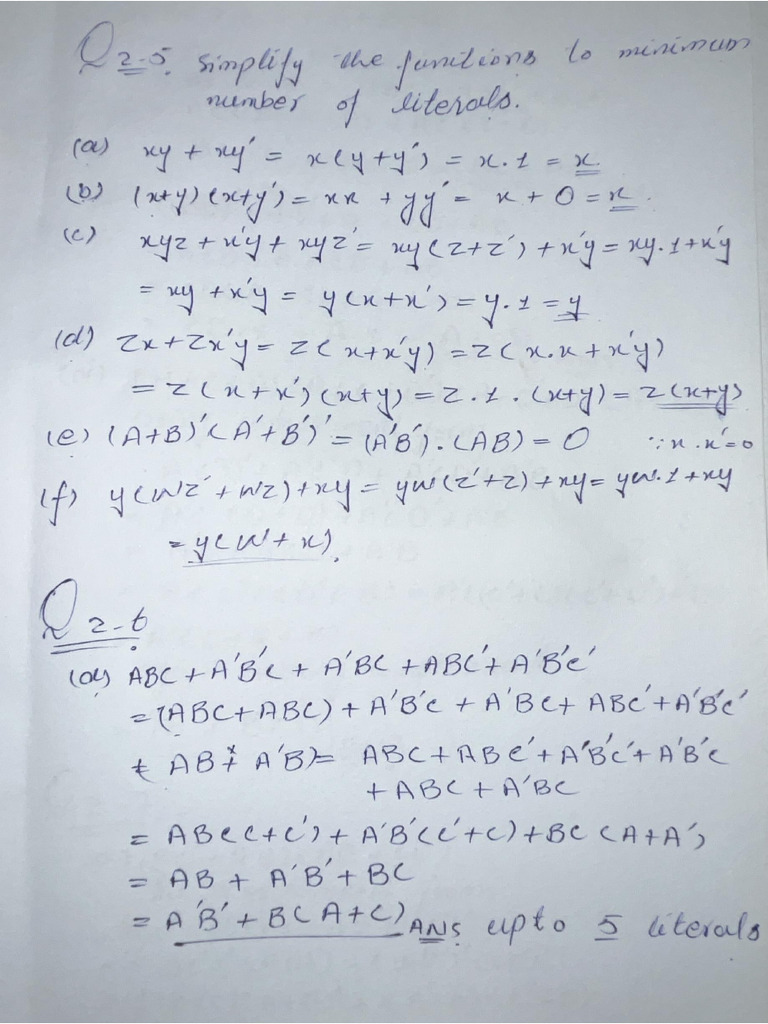 Q 2-5. Simplify the functions to minimum
number of literals.
(a) xy + xy' = x(y+y') = x.1 = x.
(b) (x+y)(x+y') = xx + yy' = x + 0 = x.
(c) xyz + x'y + xyz' = xy(z+z') + x'y = xy.1+x'y
= xy + x'y = y(x+x') = y.1 = y
(d) zx+zx'y = z(x+x'y) = z(x.x + x'y)
= z(x+x')(x+y) = z.1.(x+y) = z(x+y)
(e) (A+B)'(A'+B')' = (A'B').(AB) = 0 ∵ x.x'=0
(f) y(wz' + wz)+xy = yw(z'+z)+xy = yw.1+xy
= y(w+x).
Q 2-6
(a) ABC + A'B'C + A'BC + ABC' + A'B'C'
= (ABC+ABC) + A'B'C + A'BC + ABC' + A'B'C'
+ AB + A'B) = ABC + ABC' + A'B'C' + A'B'C
+ ABC + A'BC
= AB(C+C') + A'B'(C'+C) + BC (A+A')
= AB + A'B' + BC
= A'B' + B(A+C) ANS upto 5 literals